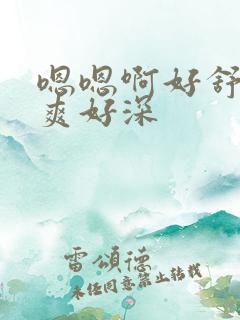 嗯嗯啊好舒
爽好深
雷颂德
未经同意禁止转载